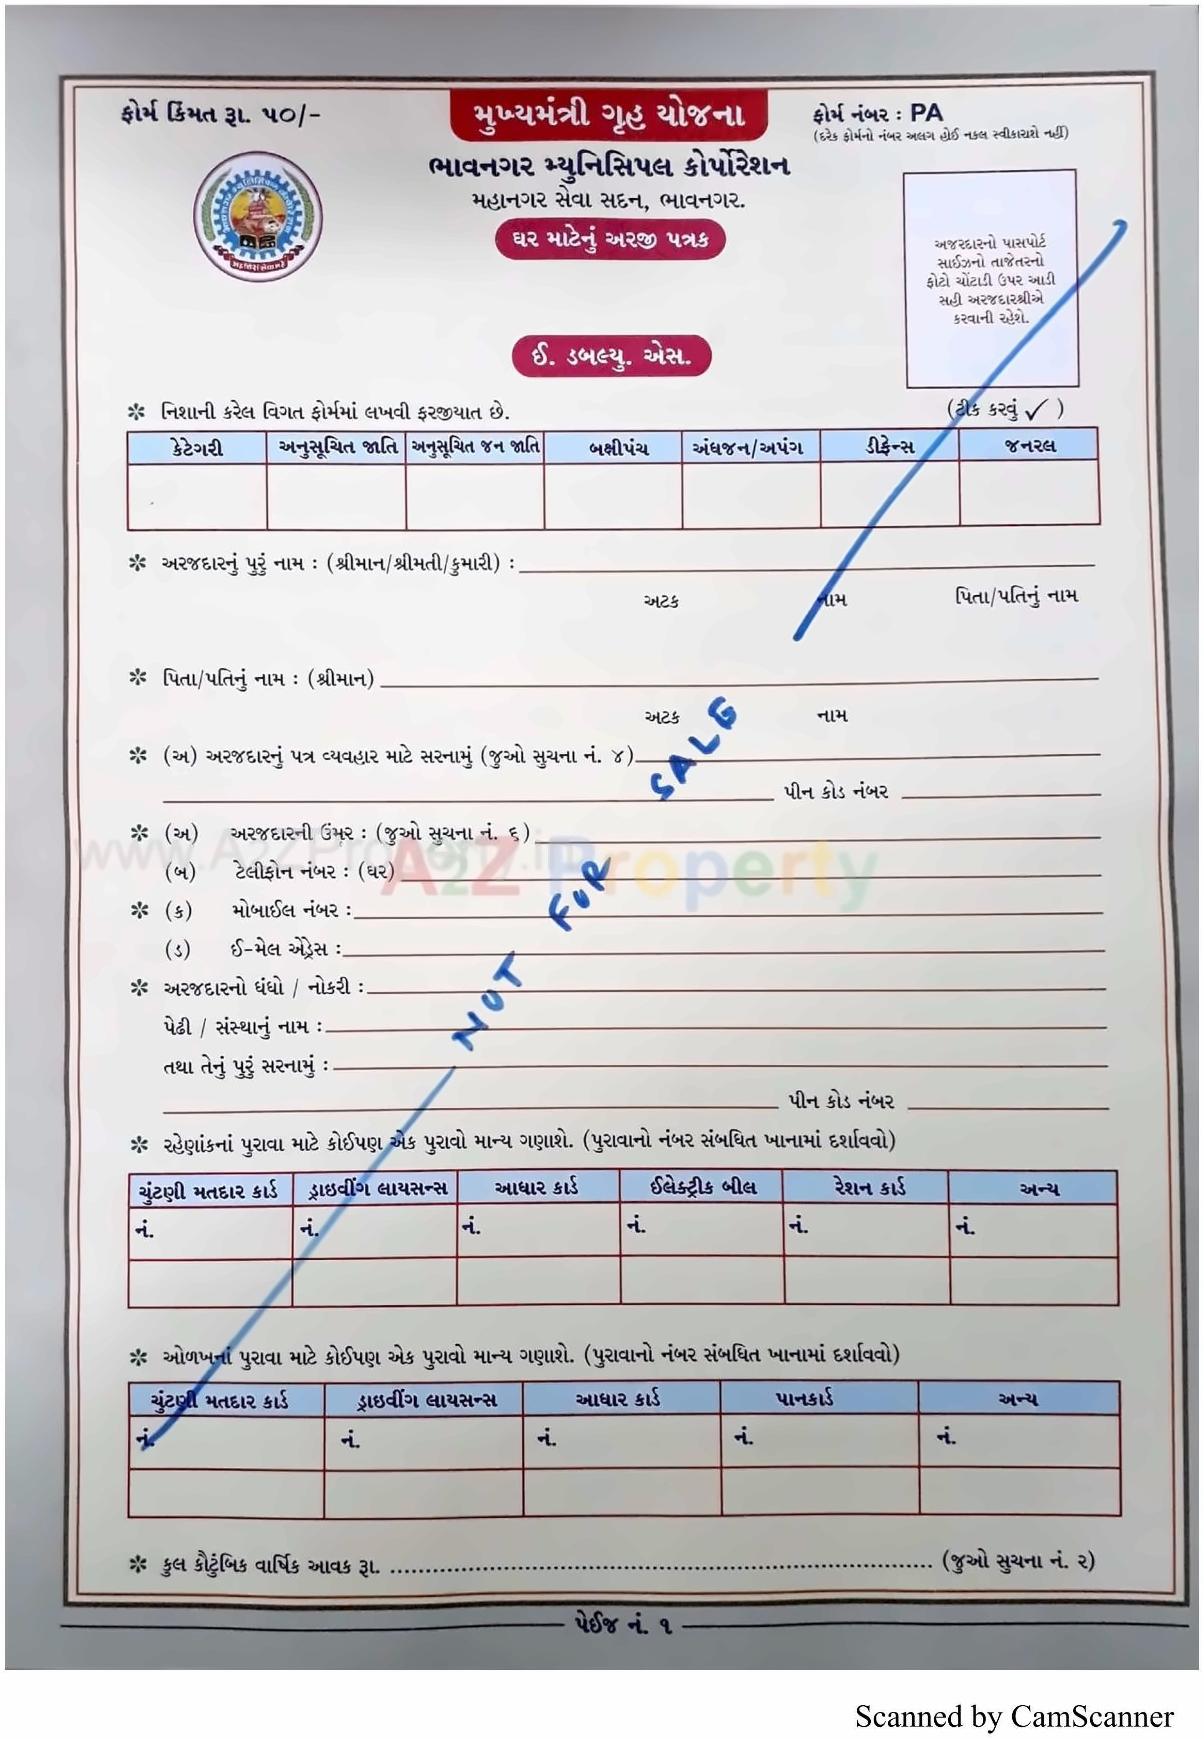 ફોર્મ કિંમત રૂા. ૫૦/-
મુખ્યમંત્રી ગૃહ યોજના
ફોર્મ નંબર : PA
(દરેક ફોર્મનો નંબર અલગ હોઈ નકલ સ્વીકારાશે નહીં)
ભાવનગર મ્યુનિસિપલ કોર્પોરેશન
મહાનગર સેવા સદન, ભાવનગર.
ઘર માટેનું અરજી પત્રક
અજરદારનો પાસપોર્ટ
સાઈઝનો તાજેતરનો
ફોટો ચોંટાડી ઉપર આડી
સહી અરજદારશ્રીએ
કરવાની રહેશે.
ઈ. ડબલ્યુ. એસ.
✻ નિશાની કરેલ વિગત ફોર્મમાં લખવી ફરજીયાત છે.
(ટીક કરવું ✓ )
કેટેગરી અનુસૂચિત જાતિ અનુસૂચિત જન જાતિ બક્ષીપંચ અંધજન/અપંગ ડીફેન્સ જનરલ
✻ અરજદારનું પુરું નામ : (શ્રીમાન/શ્રીમતી/કુમારી) :
અટક નામ પિતા/પતિનું નામ
✻ પિતા/પતિનું નામ : (શ્રીમાન)
અટક નામ
✻ (અ) અરજદારનું પત્ર વ્યવહાર માટે સરનામું (જુઓ સુચના નં. ૪)
પીન કોડ નંબર
✻ (અ) અરજદારની ઉંમર : (જુઓ સુચના નં. ૬)
(બ) ટેલીફોન નંબર : (ઘર)
✻ (ક) મોબાઈલ નંબર :
(ડ) ઈ-મેલ એડ્રેસ :
✻ અરજદારનો ધંધો / નોકરી :
પેઢી / સંસ્થાનું નામ :
તથા તેનું પુરું સરનામું :
પીન કોડ નંબર
NOT FOR SALE
www.A2ZProperty.in
A2Z Property
✻ રહેણાંકનાં પુરાવા માટે કોઈપણ એક પુરાવો માન્ય ગણાશે. (પુરાવાનો નંબર સંબધિત ખાનામાં દર્શાવવો)
ચુંટણી મતદાર કાર્ડ ડ્રાઇવીંગ લાયસન્સ આધાર કાર્ડ ઈલેક્ટ્રીક બીલ રેશન કાર્ડ અન્ય
નં. નં. નં. નં. નં. નં.
✻ ઓળખનાં પુરાવા માટે કોઈપણ એક પુરાવો માન્ય ગણાશે. (પુરાવાનો નંબર સંબધિત ખાનામાં દર્શાવવો)
ચુંટણી મતદાર કાર્ડ ડ્રાઇવીંગ લાયસન્સ આધાર કાર્ડ પાનકાર્ડ અન્ય
નં. નં. નં. નં. નં.
✻ કુલ કૌટુંબિક વાર્ષિક આવક રૂા. ........................................ (જુઓ સુચના નં. ૨)
પેઈજ નં. ૧
Scanned by CamScanner